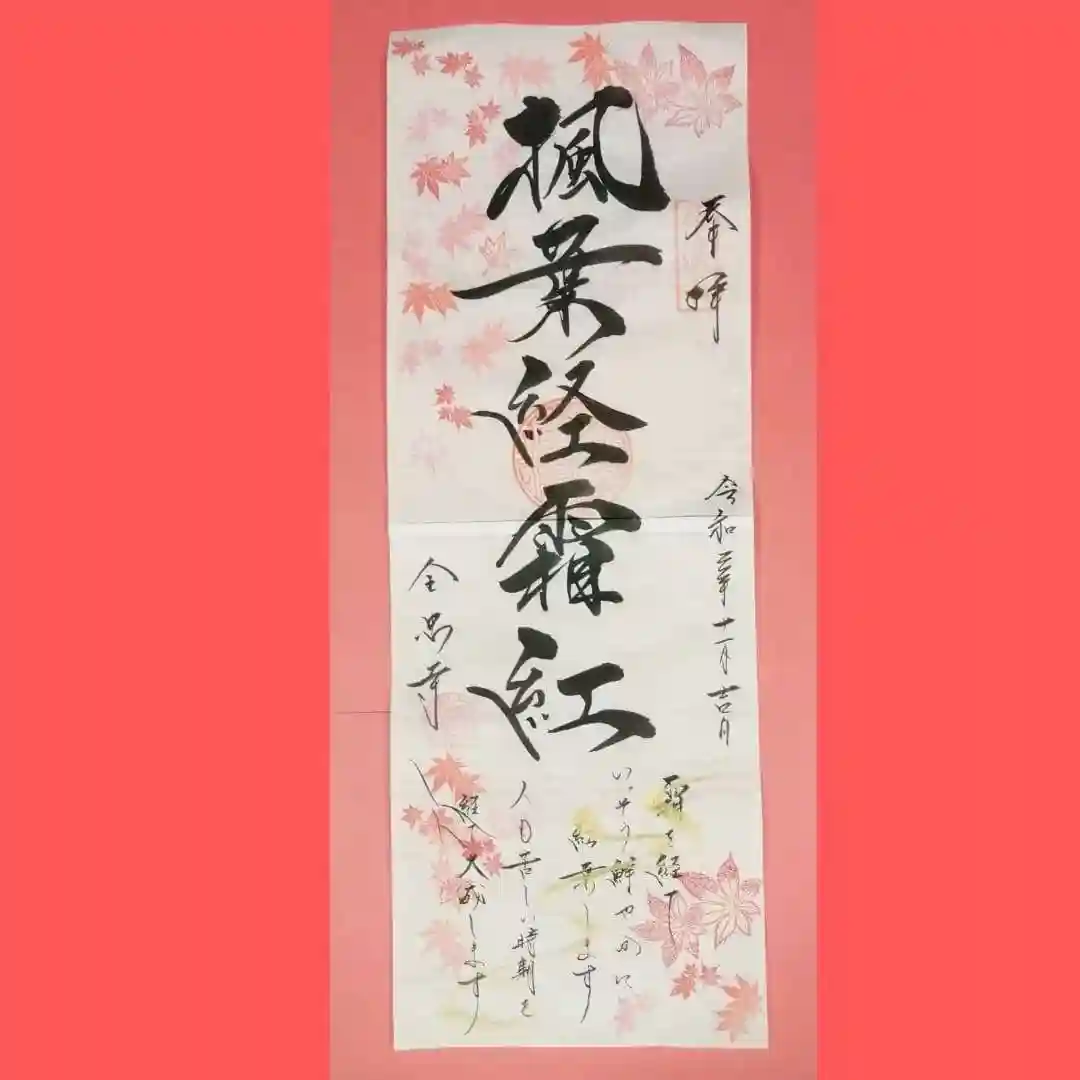 奉拝
令和三年十一月吉日
楓葉経霜紅
霜を経て
いっそう鮮やかに
紅葉します
人も苦しい時期を
経て大成します
全忠寺